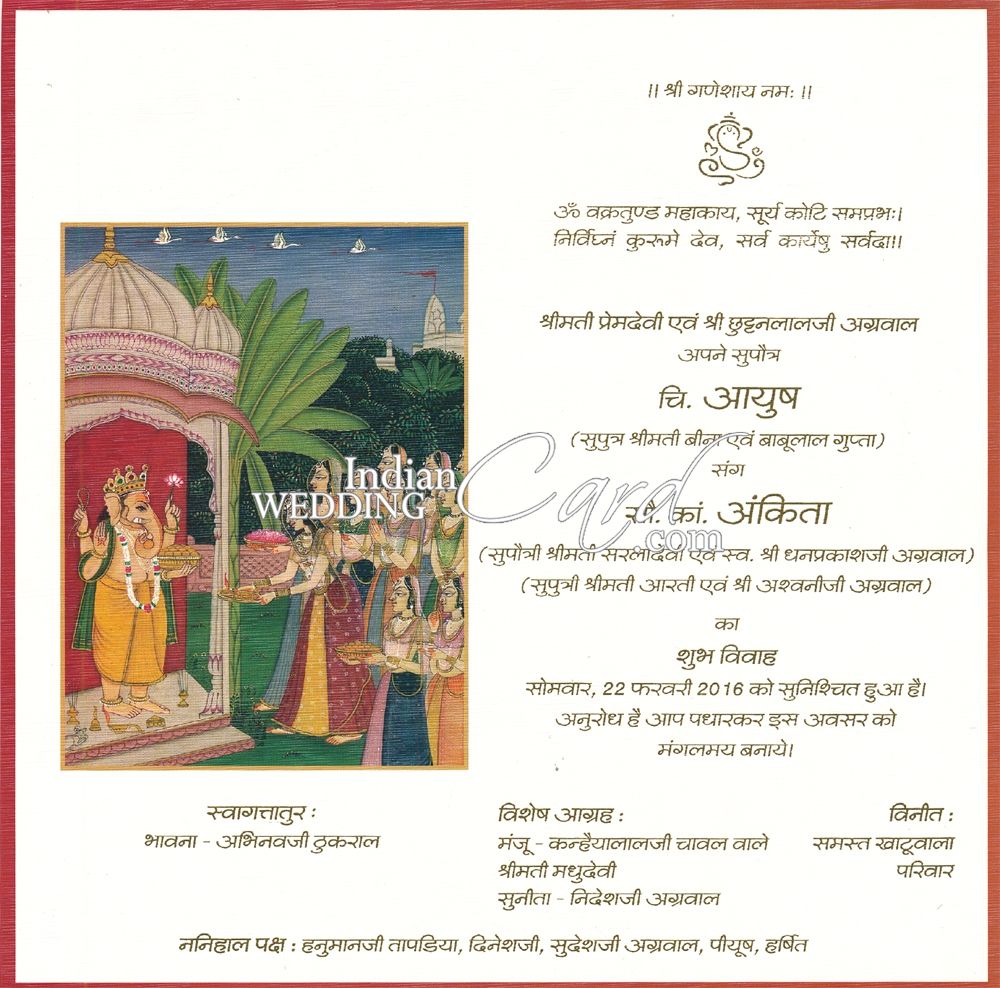 ।। श्री गणेशाय नमः ।।
ॐ वक्रतुण्ड महाकाय, सूर्य कोटि समप्रभः।
निर्विघ्नं कुरूमे देव, सर्व कार्येषु सर्वदा।।
श्रीमती प्रेमदेवी एवं श्री छुट्टनलालजी अग्रवाल
अपने सुपौत्र
चि. आयुष
(सुपुत्र श्रीमती बीना एवं बाबूलाल गुप्ता)
संग
सौ. कां. अंकिता
(सुपौत्री श्रीमती सरलादेवी एवं स्व. श्री धनप्रकाशजी अग्रवाल)
(सुपुत्री श्रीमती आरती एवं श्री अश्वनीजी अग्रवाल)
का
शुभ विवाह
सोमवार, 22 फरवरी 2016 को सुनिश्चित हुआ है।
अनुरोध है आप पधारकर इस अवसर को
मंगलमय बनाये।
Indian
WEDDING Card
.com
स्वागत्तातुर :
भावना - अभिनवजी ठुकराल
विशेष आग्रह :
मंजू - कन्हैयालालजी चावल वाले
श्रीमती मधुदेवी
सुनीता - निदेशजी अग्रवाल
विनीत :
समस्त खाटूवाला
परिवार
ननिहाल पक्ष : हनुमानजी तापडिया, दिनेशजी, सुदेशजी अग्रवाल, पीयूष, हर्षित